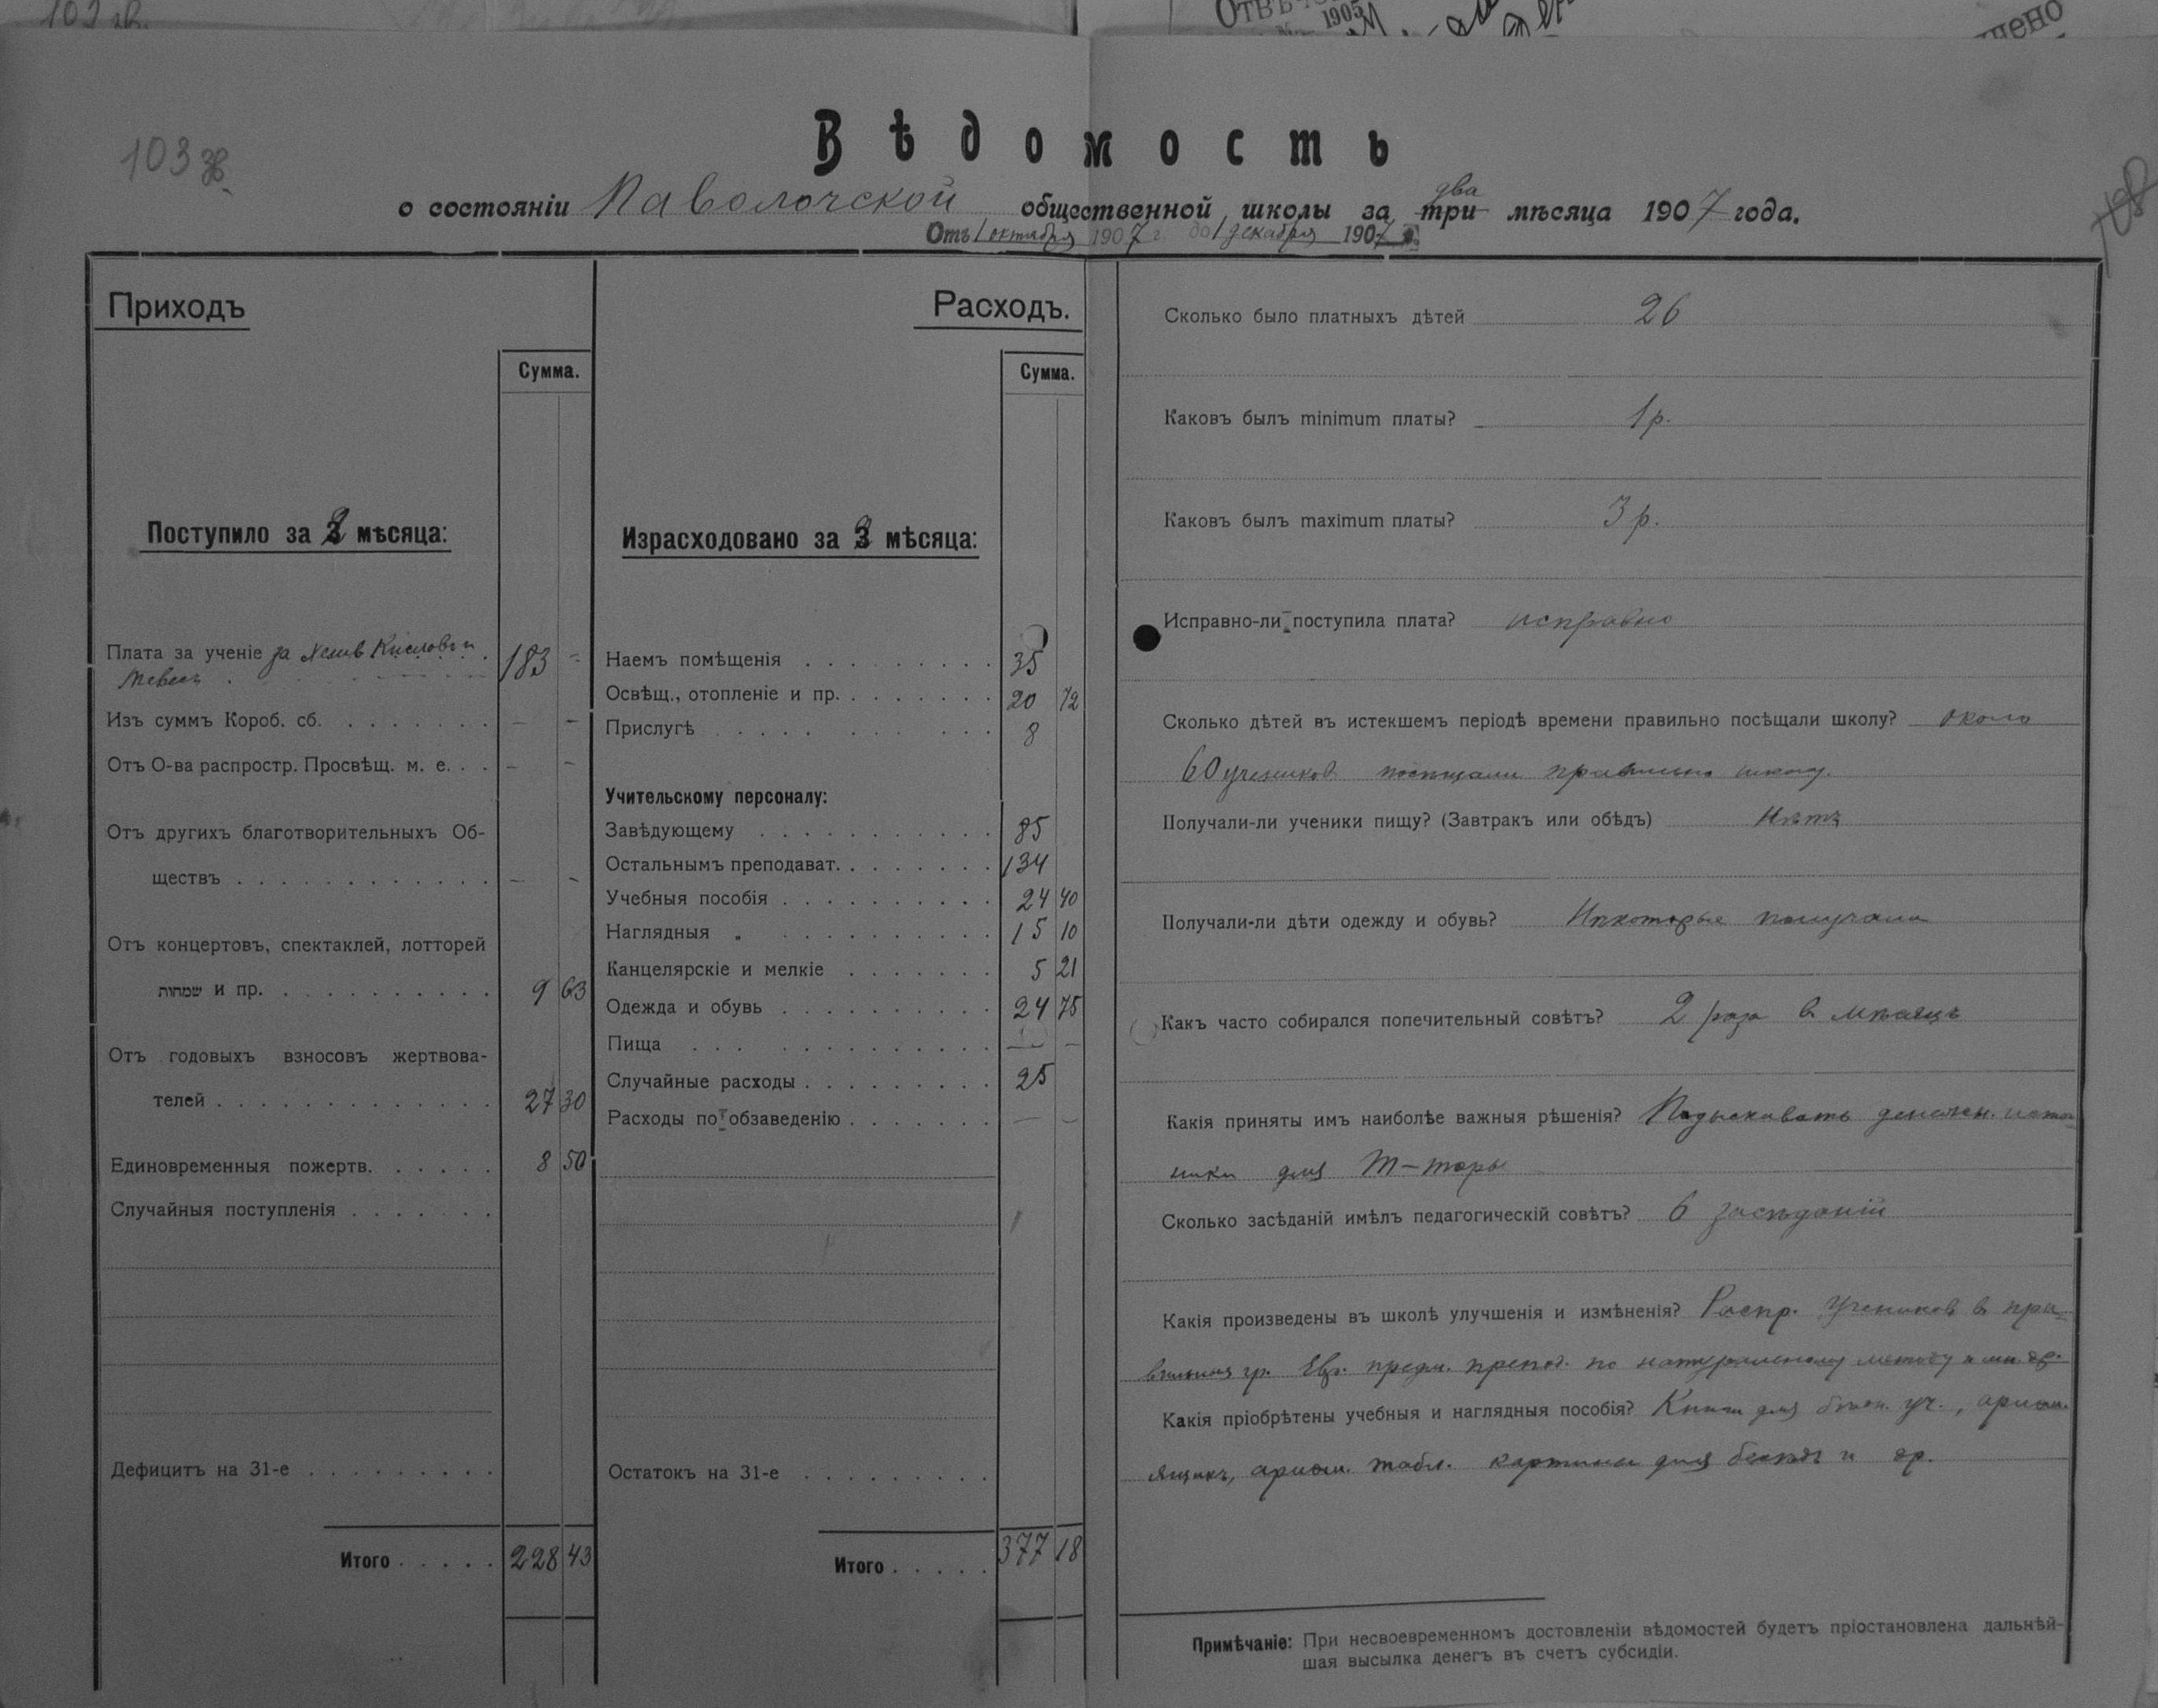 103 зв.
Отвѣчено
1905
103 зв.
108
Вѣдомость
о состояніи Паволочской общественной школы за три два мѣсяца 1907 года.
Отъ 1 октября 1907 г. до 1 декабря 1907 г.
Приходъ
Сумма.
Поступило за 2 мѣсяца:
Плата за ученіе за Хешв Кислевъ и
Тевесъ . 183 -
Изъ суммъ Короб. сб. . . . . . . . — -
Отъ О-ва распростр. Просвѣщ. м. е. . . — -
Отъ другихъ благотворительныхъ Об-
ществъ . . . . . . . . . . . . — -
Отъ концертовъ, спектаклей, лотторей
שמחות и пр. . . . . . . . . . . 9 63
Отъ годовыхъ взносовъ жертвова-
телей . . . . . . . . . . . . . 27 30
Единовременныя пожертв. . . . . . 8 50
Случайныя поступленія . . . . . . .
Дефицитъ на 31-е . . . . . . . . .
Итого . . . . . 228 43
Расходъ.
Сумма.
Израсходовано за 2 мѣсяца:
Наемъ помѣщенія . . . . . . . . . 35
Освѣщ., отопленіе и пр. . . . . . . . 20 72
Прислугѣ . . . . . . . . . . . 8
Учительскому персоналу:
Завѣдующему . . . . . . . . . . . 85
Остальнымъ преподават. . . . . . . . 134
Учебныя пособія . . . . . . . . . . 24 40
Наглядныя „ . . . . . . . . . . 15 10
Канцелярскіе и мелкіе . . . . . . . 5 21
Одежда и обувь . . . . . . . . . . 24 75
Пища . . . . . . . . . . . . . — —
Случайные расходы . . . . . . . . . 25
Расходы по обзаведенію . . . . . . . — —
Остатокъ на 31-е . . . . . . . . .
Итого . . . . . 377 18
Сколько было платныхъ дѣтей 26
Каковъ былъ minimum платы? 1 р.
Каковъ былъ maximum платы? 3 р.
Исправно-ли поступила плата? исправно
Сколько дѣтей въ истекшемъ періодѣ времени правильно посѣщали школу? около
60 учеников посѣщали правильно школу.
Получали-ли ученики пищу? (Завтракъ или обѣдъ) Нѣтъ
Получали-ли дѣти одежду и обувь? Нѣкоторые получали
Какъ часто собирался попечительный совѣтъ? 2 раза в мѣсяцъ
Какія приняты имъ наиболѣе важныя рѣшенія? Подыскивать денежн. источ-
ники для Т-торы
Сколько засѣданій имѣлъ педагогическій совѣтъ? 6 засѣданій
Какія произведены въ школѣ улучшенія и измѣненія? Распр. учеников в пра-
вильныя гр. Евр. предм. препод. по натуральному методу и мн. др.
Какія пріобрѣтены учебныя и наглядныя пособія? Книги для уч., ариѳм.
ящикъ, ариѳм. табл. картины для бесѣдъ и др.
Примѣчаніе: При несвоевременномъ достовленіи вѣдомостей будетъ пріостановлена дальнѣй-
шая высылка денегъ въ счетъ субсидіи.